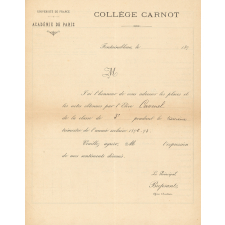 UNIVERSITÉ DE FRANCE
ACADÉMIE DE PARIS
COLLÈGE CARNOT
Fontainebleau, le 189
M
J'ai l'honneur de vous adresser les places et
les notes obtenues par l'Élève
de la classe de pendant le
trimestre de l'année scolaire 189
Veuillez agréer, M l'expression
de mes sentiments dévoués.
Le Principal